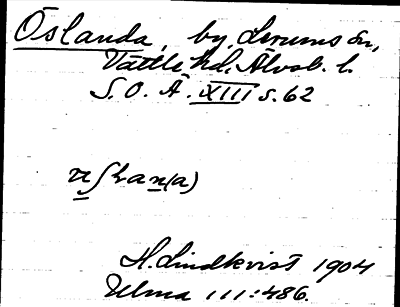 Öslanda, by, Lerums sn,
Vättle hd, Älvsb. l.
S. O. Ä. XIII s. 62
H. Lindkvist 1904
Ulma 111:486.